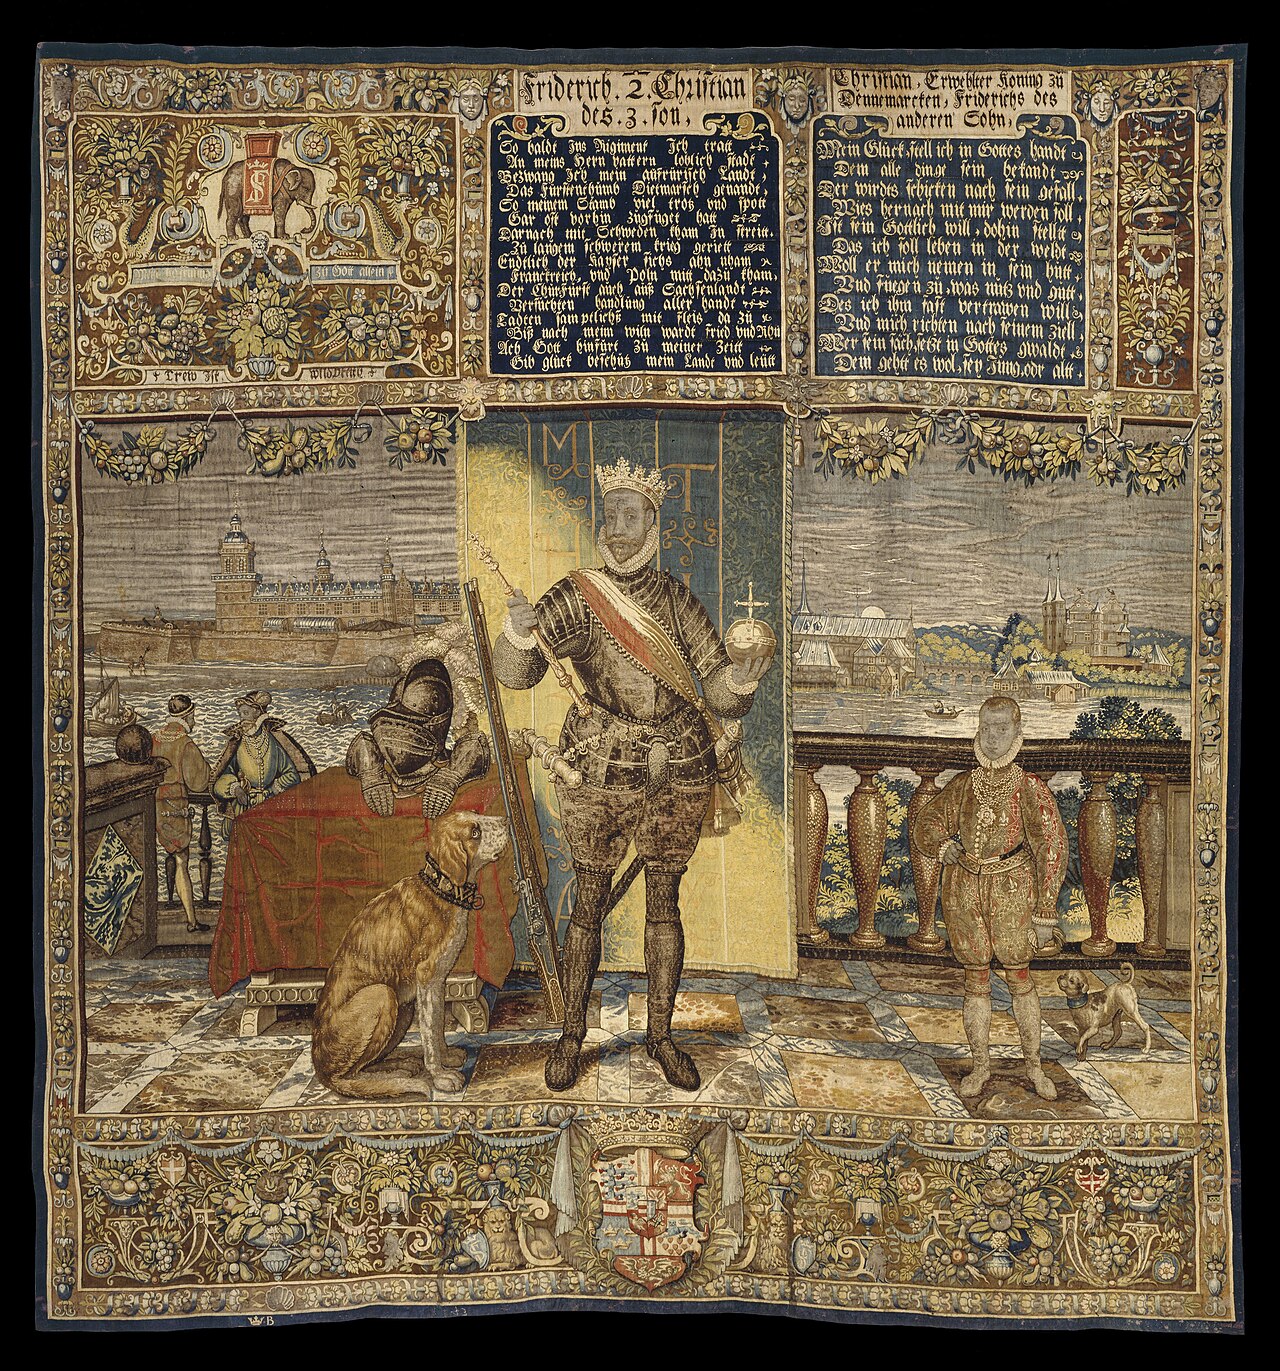 Friderich. 2. Christian
des. 3. son,
So baldt Ins Rigiment Ich tratt
An meins Hern vattern loblich stadt
Bezwang Ich mein aufrürisch Landt
Das Fürstenthumb Dietmarsch genandt
So meinem Stamb viel trotz vnd spott
Gar oft vorhin zugfüget hatt
Darnach mit Schweden kham Zu streitt
Zu langem schwerem krieg geriett
Endtlich der Kayser sichs ahn nham
Franckreich, vnd Poln mitt dazu kham,
Der Chürfürst auch auß Sachsenlandt
Versuchten handlung aller handt
Tadten sam ptlichs mit fleis da zu
Biß nach meim wiln wardt fried vnd Rhu
Ach Gott hinfürt zu meiner Zeitt
Gib glück beschütz mein Lande vnd leütt
Christian, Erwehlter Koning zu
Dennemarcken, Friderichs des
anderen Sohn,
Mein Glück stell ich in Gottes handt
Dem alle dinge sein bekandt
Der wirdts schicken nach sein gefall
Wies hernach mit mir werden soll
Ist sein Gottlich will, dohin stellt
Das ich soll leben in der weldt
Woll er mich nemen in sein hutt
Vnd fuegen zu, was nutz vnd gutt,
Des ich ihm fast vertrawen will
Vnd mich richten nach seinem ziell
Wer sein sach setzt in Gottes gwaldt
Dem geht es wol, sey Jung, odr altt
FS
zu Gott allein
Trew ist wildbrett
M T
B